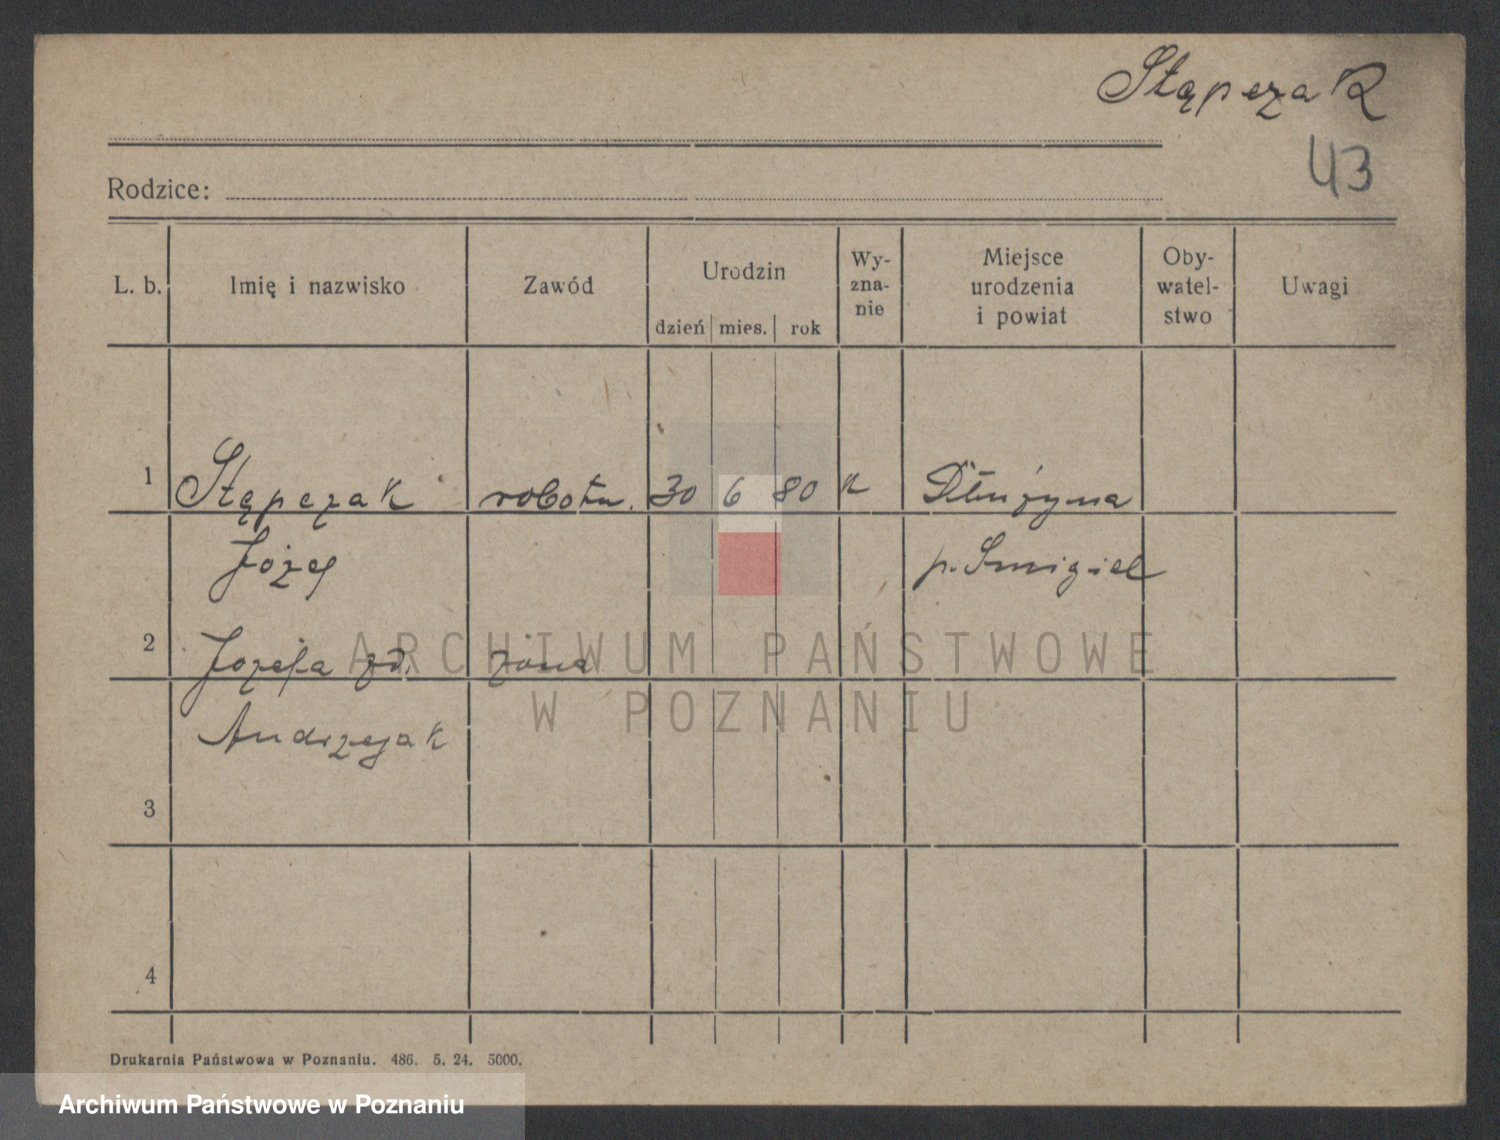 Stąpczak
43
Rodzice:
L. b. Imię i nazwisko Zawód Urodzin dzień mies. rok Wy-zna-nie Miejsce urodzenia i powiat Oby-watel-stwo Uwagi
1 Stąpczak robotn. 30 6 80 k Dłużyna
Józef p. Smigiel
2 Józefa zd. żona
Andrzejak
3
4
ARCHIWUM PAŃSTWOWE
W POZNANIU
Drukarnia Państwowa w Poznaniu. 486. 5. 24. 5000.
Archiwum Państwowe w Poznaniu